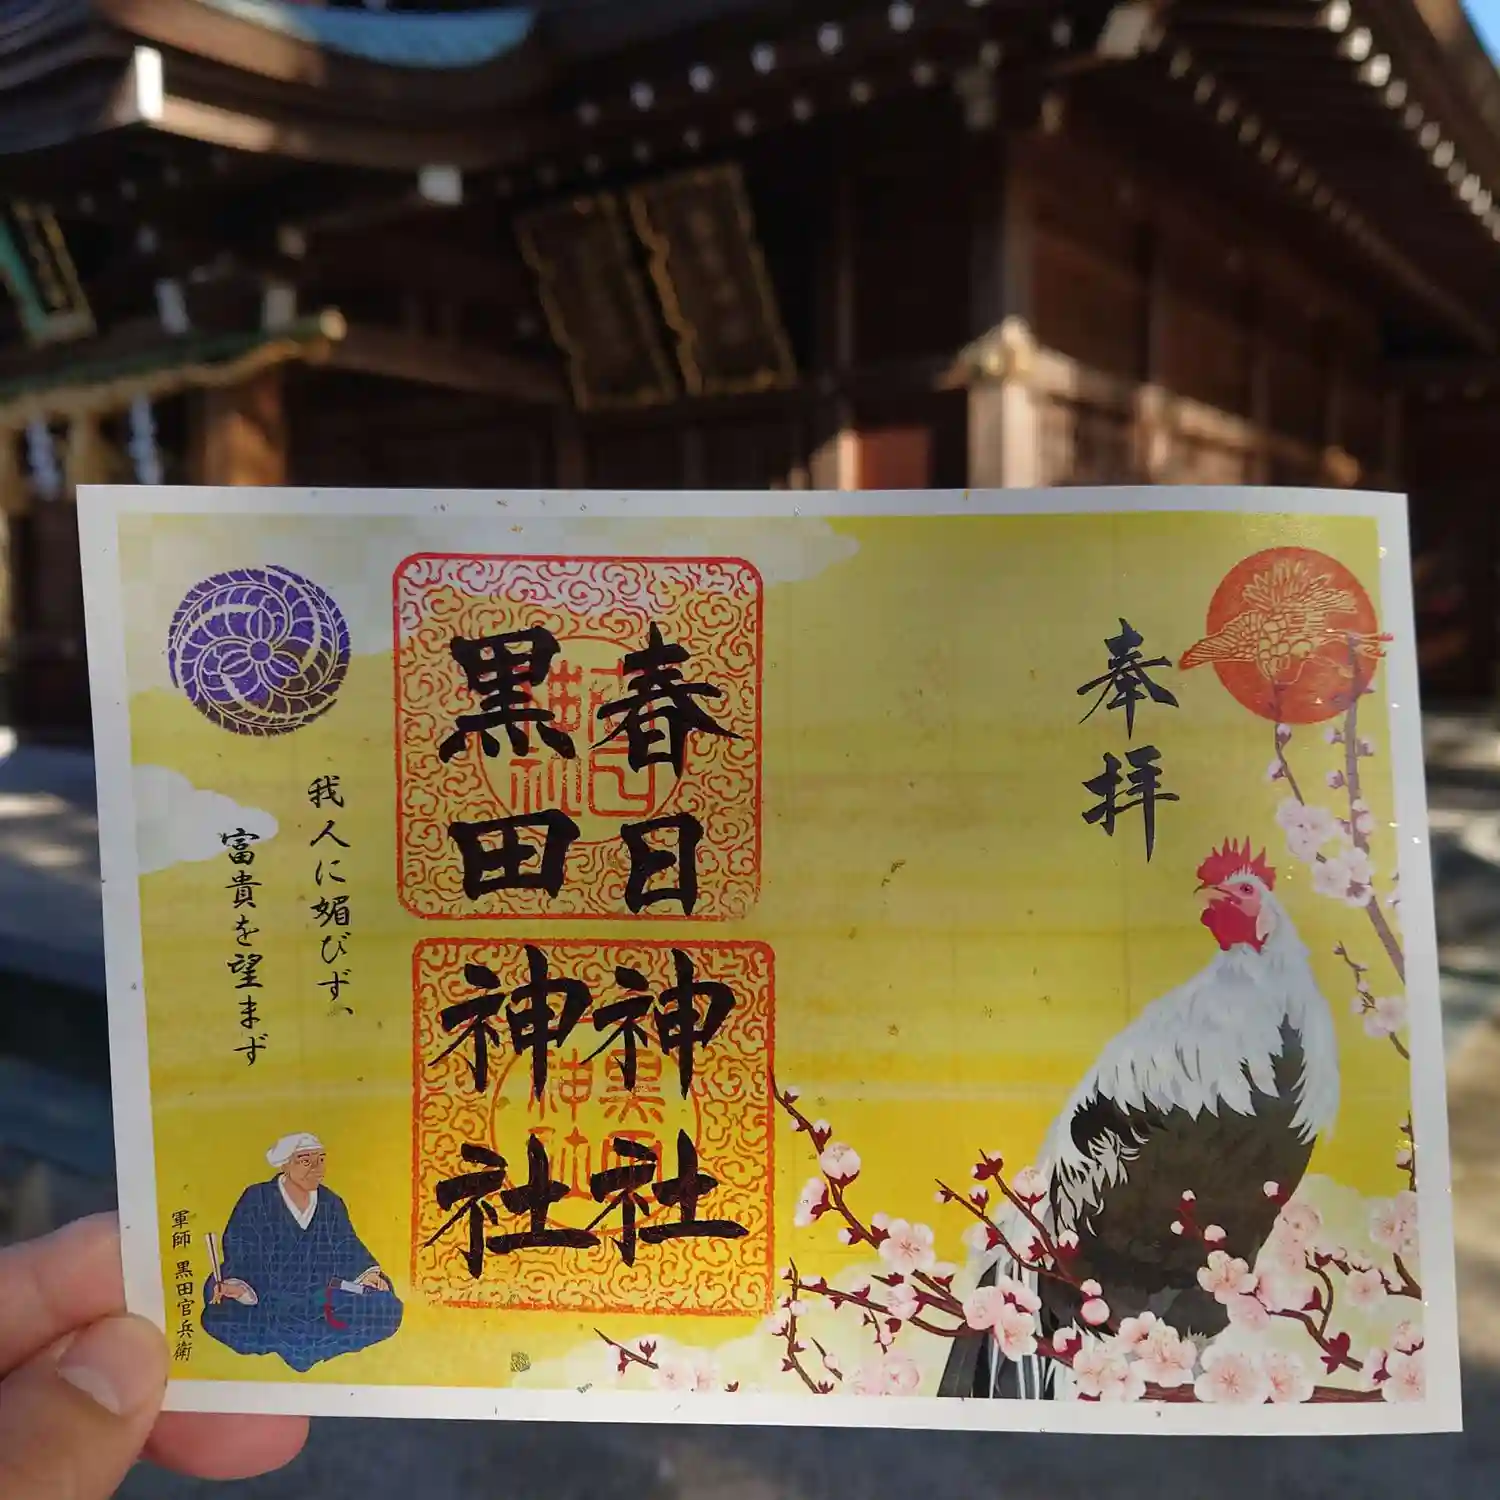 奉拝
春日神社
黒田神社
我人に媚びず、
富貴を望まず
軍師 黒田官兵衛
黒田